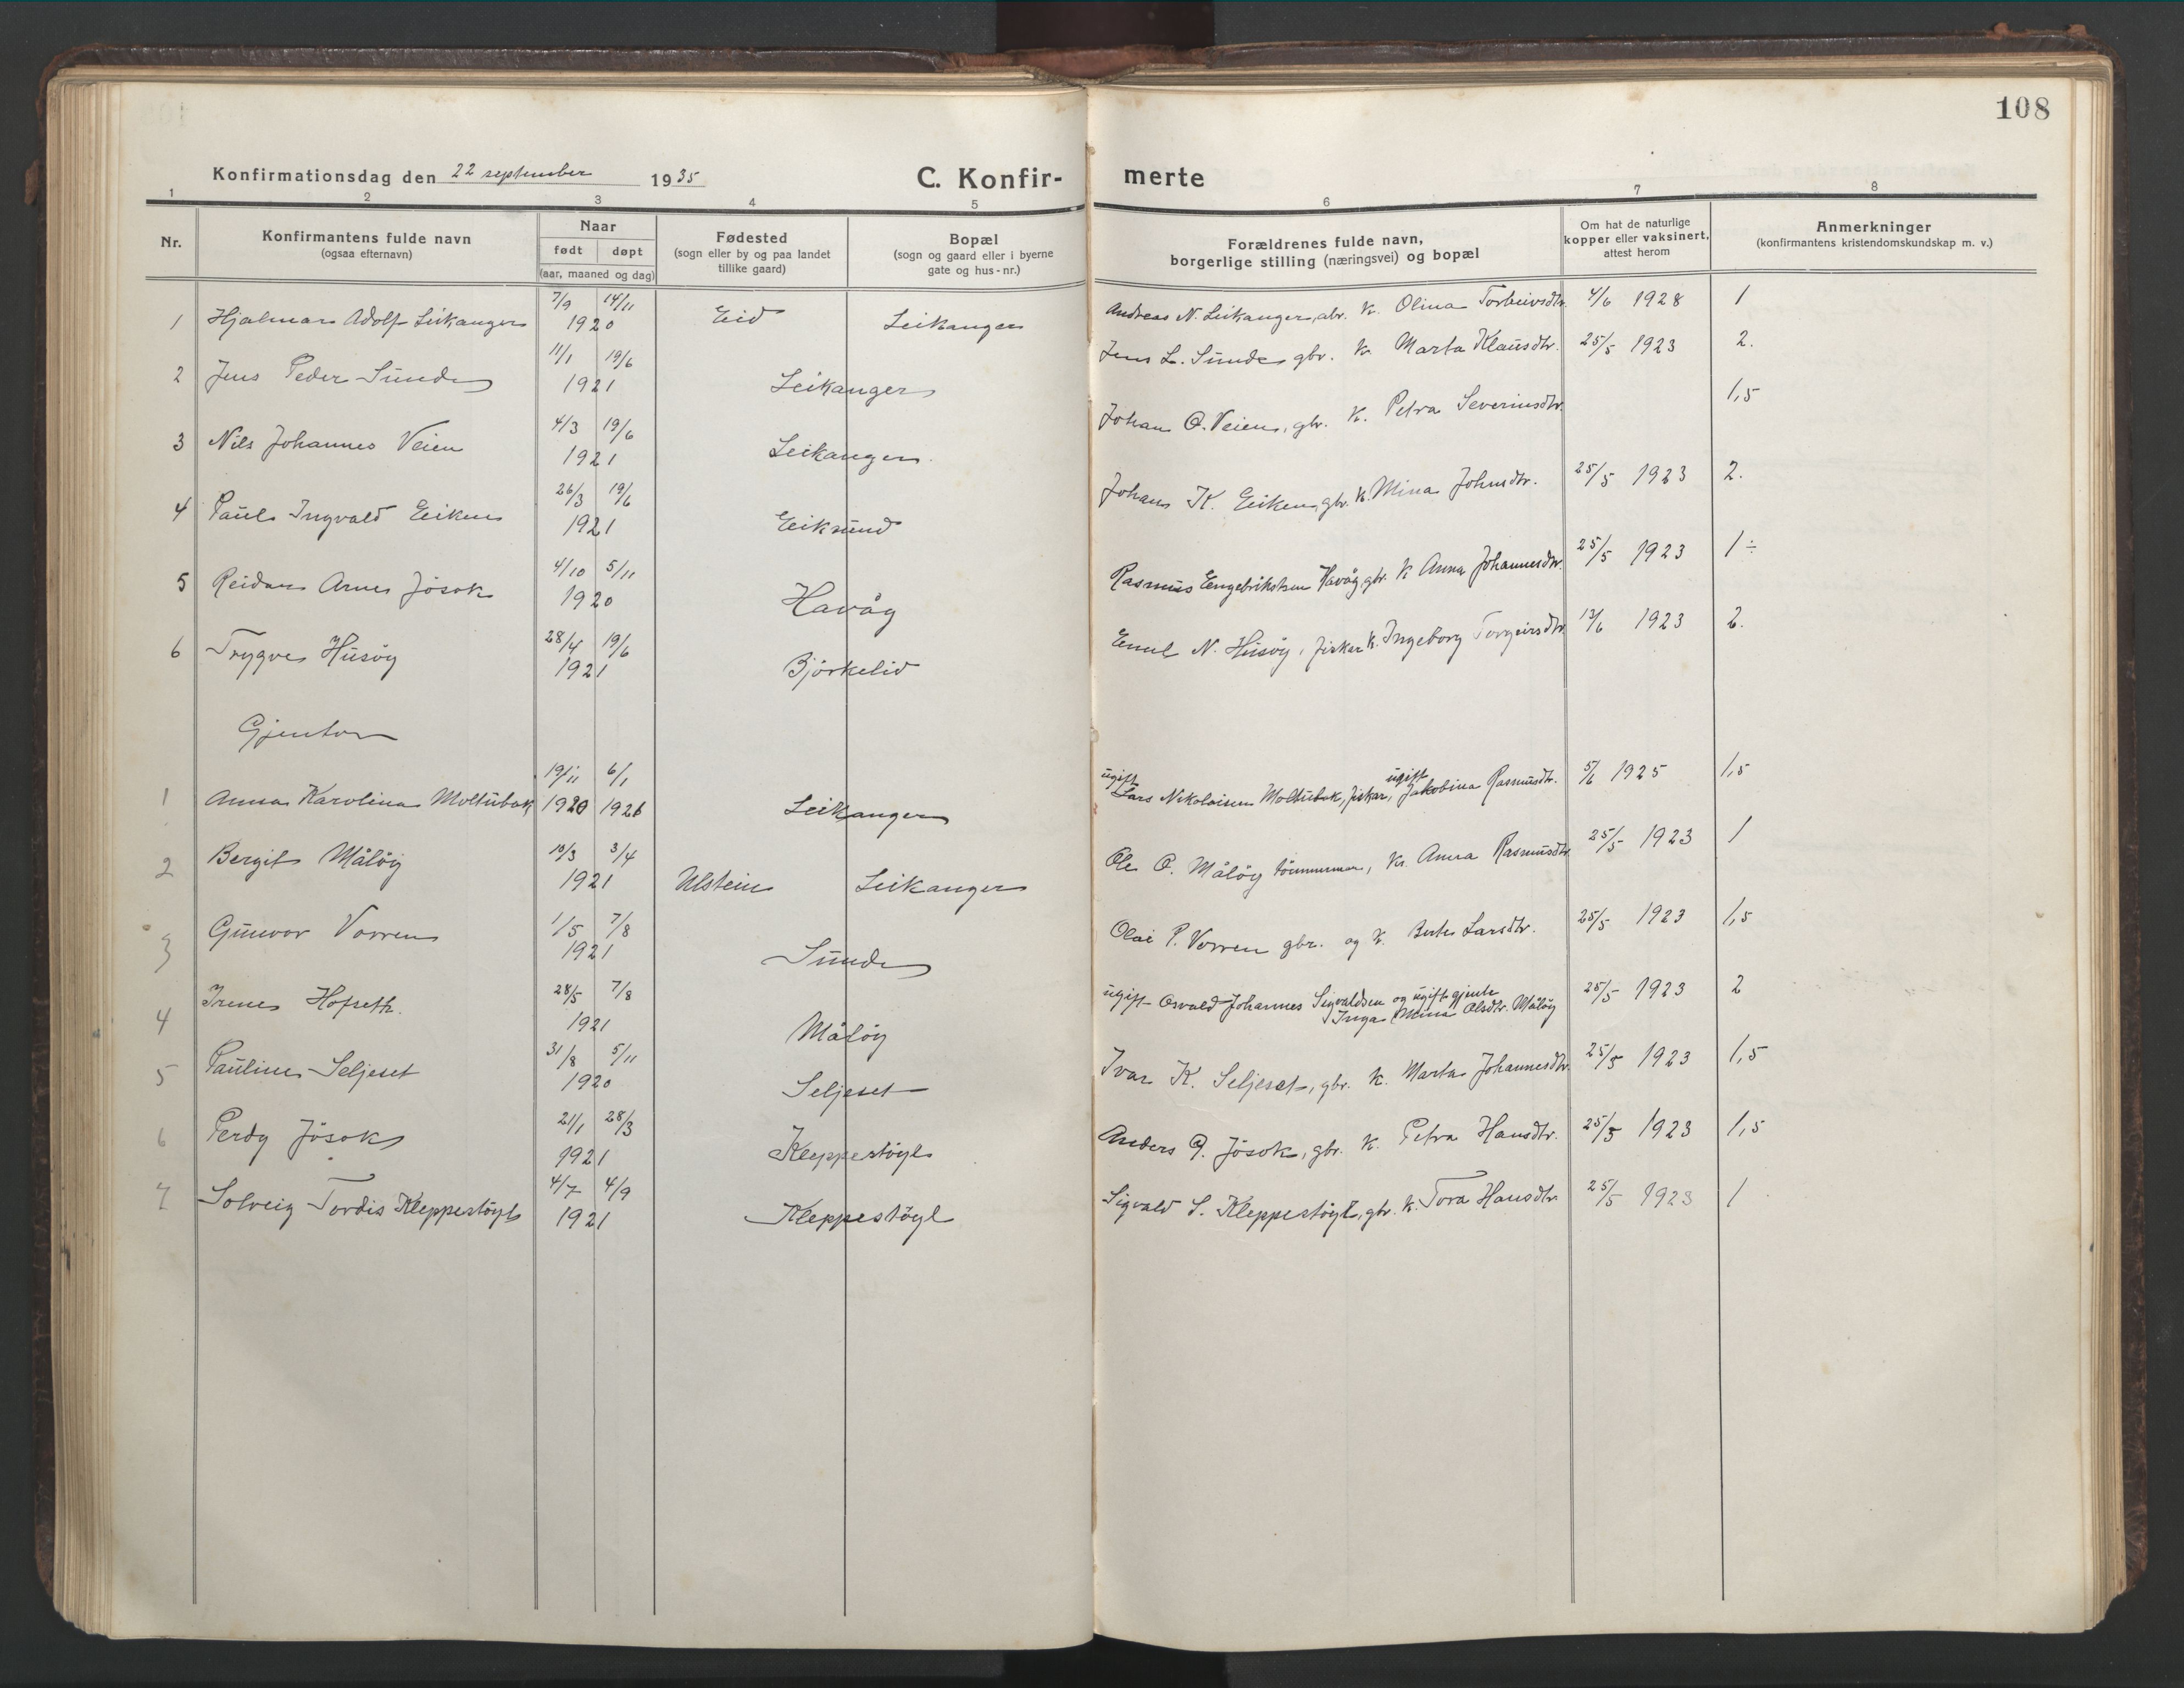 108
Konfirmationsdag den 22 september 1935
C. Konfir- merte
1 2 3 4 5 6 7 8
Nr.
Konfirmantens fulde navn
(ogsaa efternavn)
Naar
født døpt
(aar, maaned og dag)
Fødested
(sogn eller by og paa landet
tillike gaard)
Bopæl
(sogn og gaard eller i byerne
gate og hus-nr.)
Forældrenes fulde navn,
borgerlige stilling (næringsvei) og bopæl
Om hat de naturlige
kopper eller vaksinert,
attest herom
Anmerkninger
(konfirmantens kristendomskundskap m. v.)
1 Hjalmar Adolf Leikanger 7/9 14/11 1920 Eid Leikanger Andreas N. Leikanger, abr. K. Olina Torbeivsdtr. 4/6 1928 1
2 Jens Peder Sunde 11/1 19/6 1921 Leikanger Jens L. Sunde gbr. K. Marta Klausdtr. 25/5 1923 2.
3 Nils Johannes Veien 4/3 19/6 1921 Leikanger. Johan O. Veien, gbr. K. Petra Severinsdtr. 1,5
4 Paul Ingvald Eiken 26/3 19/6 1921 Eiksund Johan K. Eiken, gbr. K. Mina Johnsdtr. 25/5 1923 2.
5 Reidar Arne Jösok 4/10 5/11 1920 Havåg Rasmus Engebriktsen Havåg, gbr. K Anna Johannesdtr. 25/5 1923 1 ÷
6 Trygve Husöy 28/4 19/6 1921 Björkelid Emil N. Husöy, fisker K. Ingeborg Torgeirsdtr. 13/6 1923 2.
Gjentor
1 Anna Karolina Moltubak 19/11 6/1 1920 1926 Leikanger ugift Lars Nikolaisen Moltubak, fiskar, ugift Jakobina Rasmusdtr. 5/6 1925 1,5
2 Bergit Målöy 10/3 3/4 1921 Ulstein Leikanger Ole O. Målöy tömmerman, K. Anna Rasmusdtr. 25/5 1923 1
3 Gunvor Vorren 1/5 7/8 1921 Sunde Olai P. Vorren gbr. og K. Berte Larsdtr. 25/5 1923 1,5
4 Irene Hofseth. 28/5 7/8 1921 Målöy ugift Osvald Johannes Sigvaldsen og ugift gjente
Inga Mina Olsdtr. Målöy 25/5 1923 2
5 Pauline Seljeset 31/8 5/11 1920 Seljeset Ivar K. Seljeset, gbr. K. Marta Johannesdtr. 25/5 1923 1,5
6 Perdy Jösok 21/1 28/3 1921 Kleppestöyl Anders P. Jösok, gbr. K. Petra Hansdtr. 25/5 1923 1,5
7 Solveig Tordis Kleppestöyl 4/7 4/9 1921 Kleppestöyl Sigvald S. Kleppestöyl, gbr. K. Tora Hansdtr. 25/5 1923 1